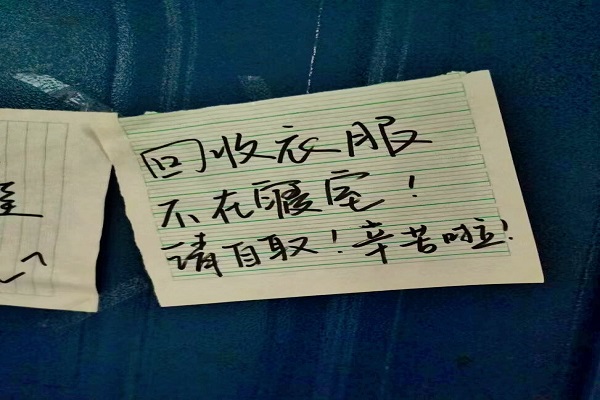 回收衣服
不在寝室！
请自取！辛苦啦！